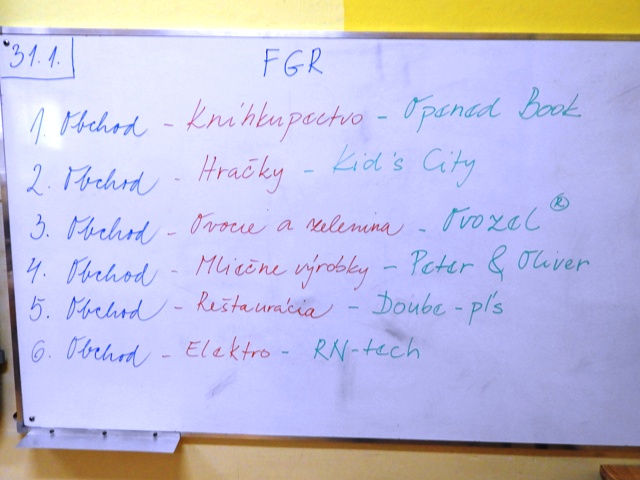 31.1.
FGR
1. Obchod - Kníhkupectvo - Opened Book
2. Obchod - Hračky - Kid's City
3. Obchod - Ovocie a zelenina - Ovozel ®
4. Obchod - Mliečne výrobky - Peter & Oliver
5. Obchod - Reštaurácia - Doube-pl's
6. Obchod - Elektro - RN-tech